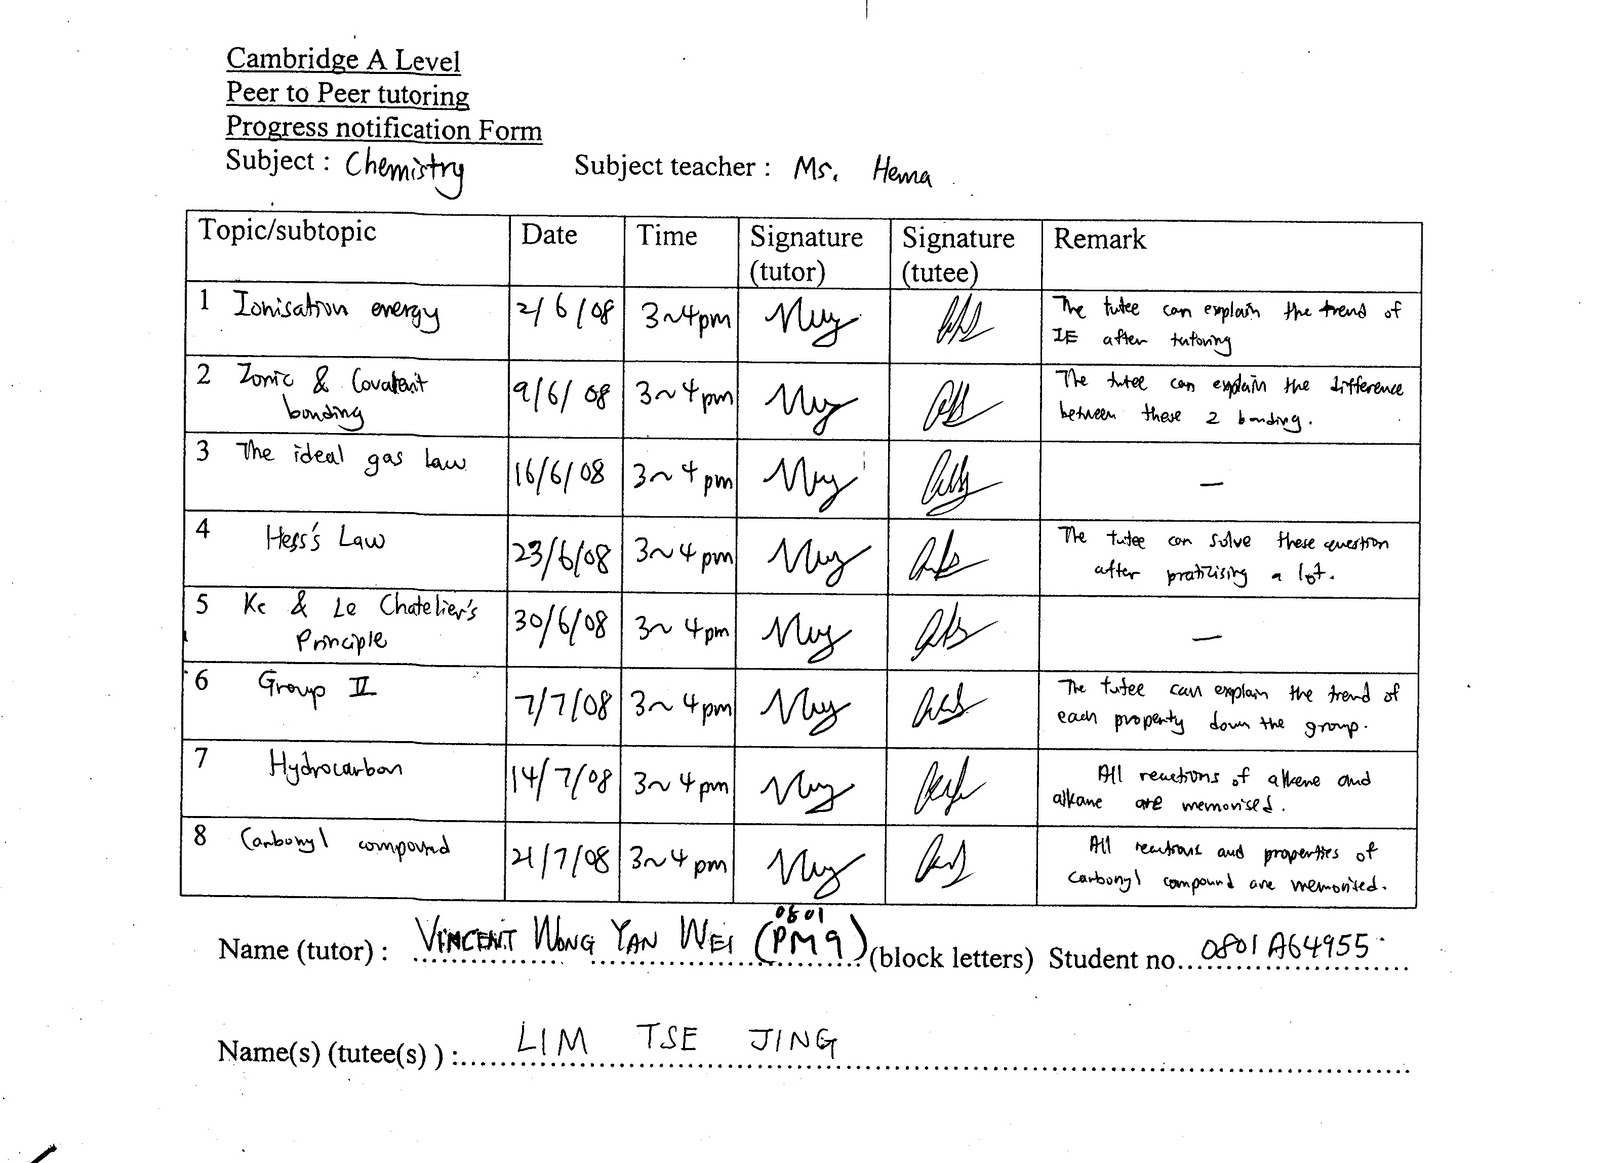 Cambridge A Level
Peer to Peer tutoring
Progress notification Form
Subject : Chemistry Subject teacher : Ms. Hema
Topic/subtopic Date Time Signature (tutor) Signature (tutee) Remark
1 Ionisation energy 2/6/08 3~4pm The tutee can explain the trend of
IE after tutoring
2 Ionic & Covalent 9/6/08 3~4pm The tutee can explain the difference
bonding between these 2 bonding.
3 The ideal gas law 16/6/08 3~4pm —
4 Hess's Law 23/6/08 3~4pm The tutee can solve these question
after pratizising a lot.
5 Kc & Le Chatelier's 30/6/08 3~4pm —
Principle
6 Group II 7/7/08 3~4pm The tutee can explain the trend of
each property down the group.
7 Hydrocarbon 14/7/08 3~4pm All reactions of alkene and
alkane are memorised.
8 Carbonyl compound 21/7/08 3~4pm All reactions and properties of
carbonyl compound are memorised.
Name (tutor) : VINCENT WONG YAN WEI (0801 PM9) (block letters) Student no. 0801A64955
Name(s) (tutee(s) ) : LIM TSE JING